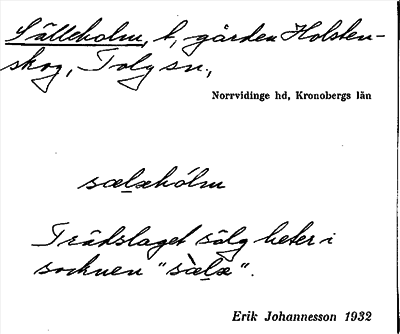 Sälleholm, t, gården Holsten-
skog, Tolg sn.,
Norrvidinge hd, Kronobergs län
sælæhólm
Trädslaget sälg heter i
socknen "sælæ".
Erik Johannesson 1932